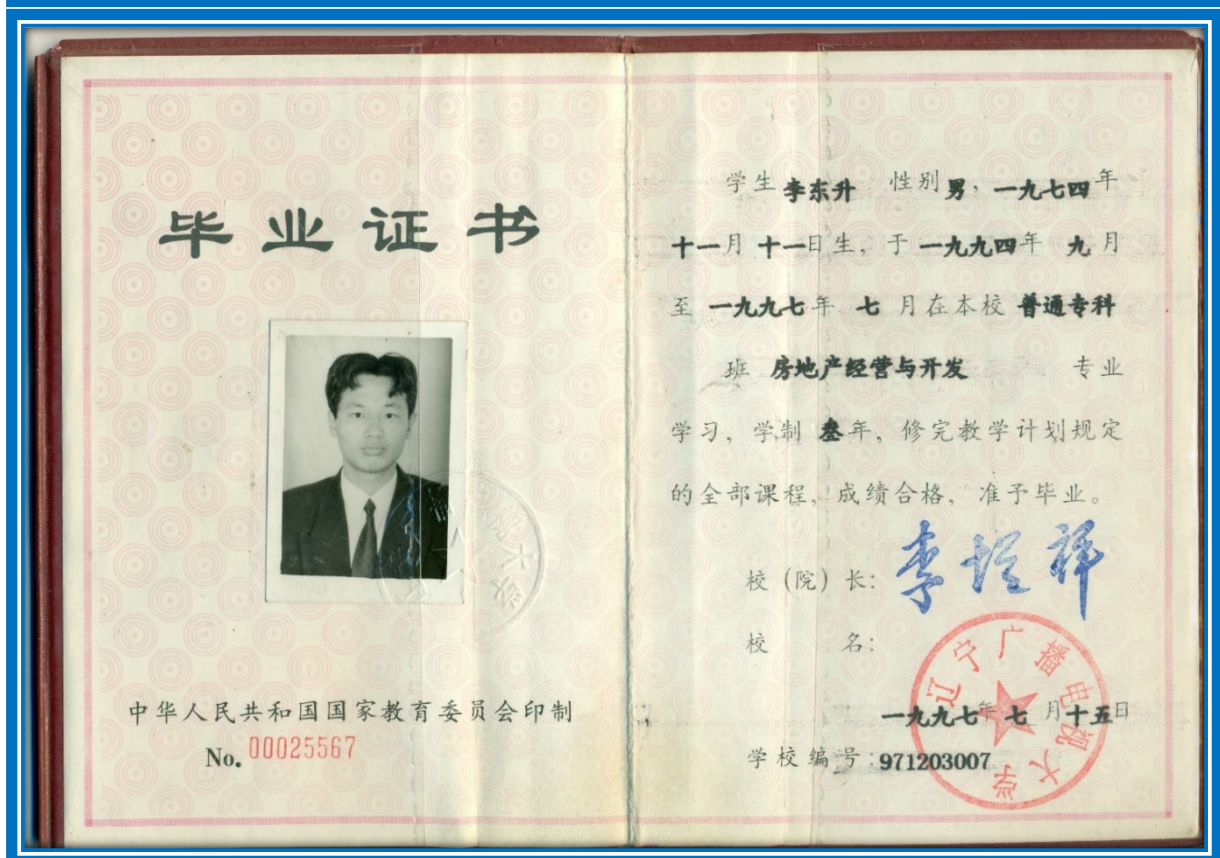 毕业证书
中华人民共和国国家教育委员会印制
No. 00025567
学生 李东升 性别 男, 一九七四年
十一月 十一日生, 于 一九九四年 九月
至 一九九七年 七 月在本校 普通专科
班 房地产经营与开发 专业
学习, 学制 叁年, 修完教学计划规定
的全部课程, 成绩合格, 准予毕业。
校 (院) 长:
校 名:
辽宁广播电视大学
一九九七年 七 月十五日
学校编号:971203007